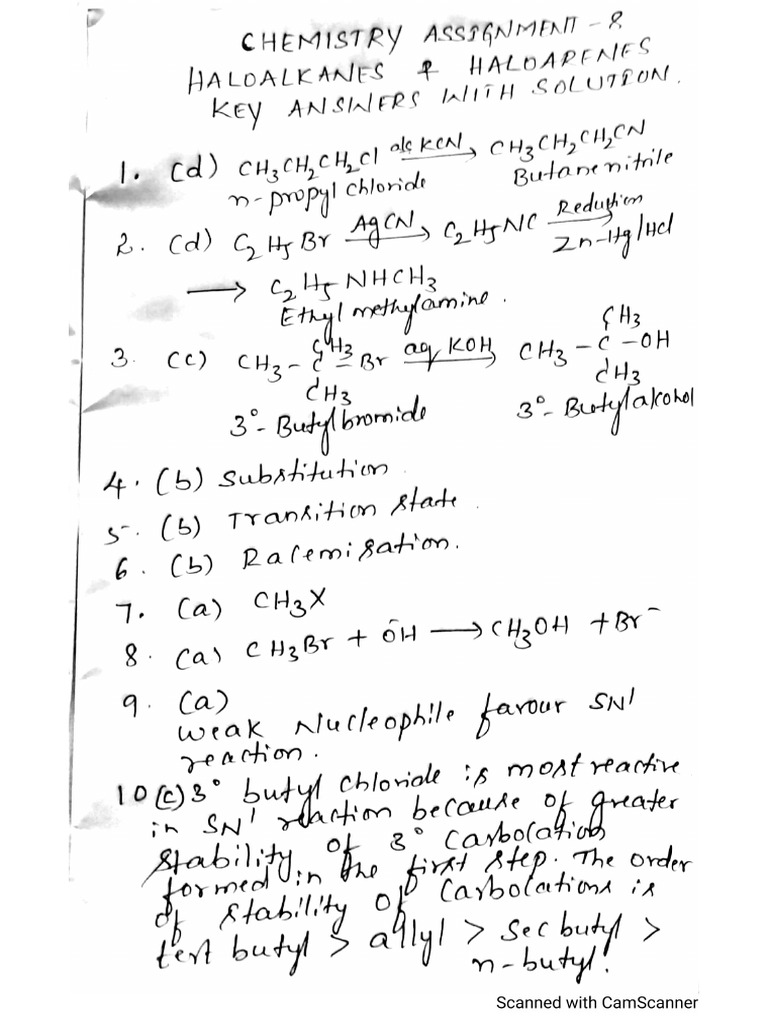 CHEMISTRY ASSIGNMENT - 8
HALOALKANES & HALOARENES
KEY ANSWERS WITH SOLUTION.
1. (d) CH3CH2CH2Cl alc KCN → CH3CH2CH2CN
n-propyl chloride Butanenitrile
2. (d) C2H5Br AgCN → C2H5NC Reduction Zn-Hg/HCl
→ C2H5NHCH3
Ethyl methylamine.
CH3 CH3
3. (c) CH3 - C - Br aq KOH → CH3 - C - OH
CH3 CH3
3°- Butyl bromide 3°- Butylakohol
4. (b) Substitution
5. (b) Transition state.
6. (b) Racemisation.
7. (a) CH3X
8. (a) CH3Br + ŌH → CH3OH + Br⁻
9. (a)
weak Nucleophile favour SN1
reaction.
10 (c) 3° butyl chloride is most reactive
in SN1 reaction because of greater
stability of 3° Carbocation
formed in the first step. The order
of stability of Carbocations is
tert butyl > allyl > sec butyl >
n-butyl.
Scanned with CamScanner